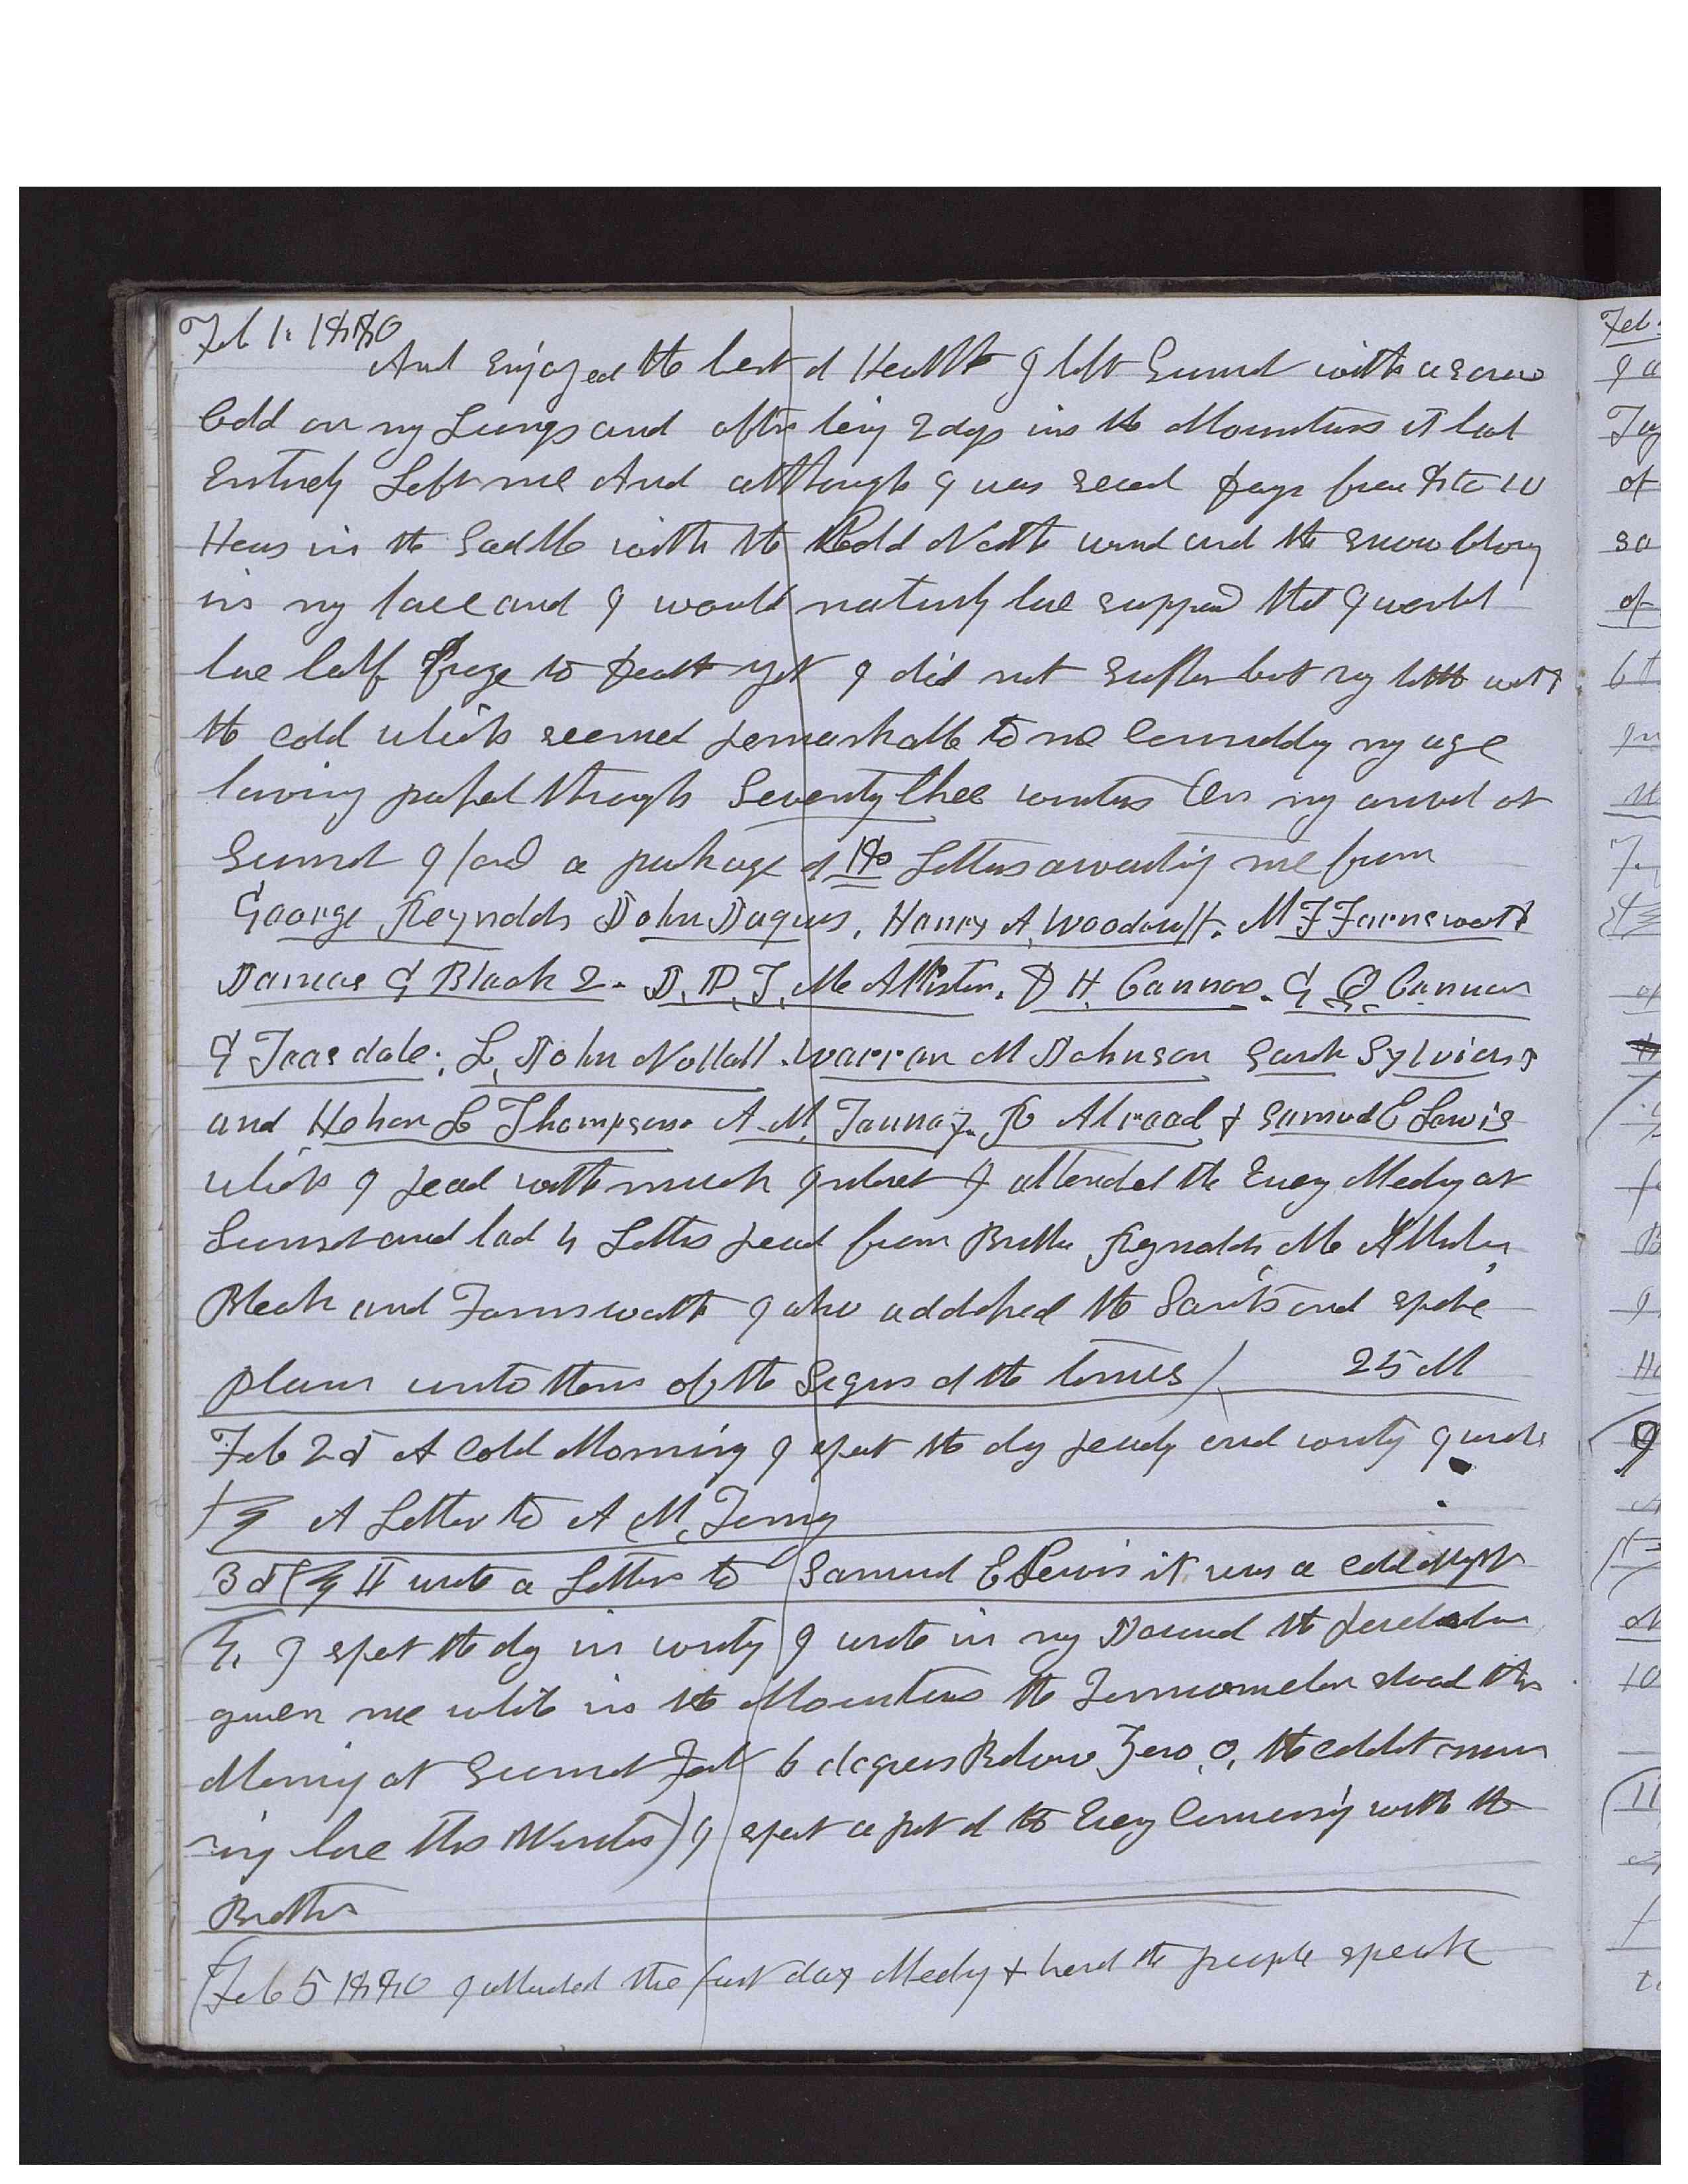 Feb 1. 1880
And Enjoyed the best of Health I left Sunset with a severe
Cold on my Lungs and after being 2 days in the Mountains it had
Entirely Left me And although I was several Days from 8 to 10
Hours in the Saddle with the Cold North wind and the snow blowing
in my face and I would naturly have supposed that I would
have half froze to Death yet I did not suffer but vry little with
the cold which seemed remarkable to me Considering my age
having passed through Seventy three winters On my arrival at
Sunset I found a package of 18 Letters awaiting me from
George Reynolds John Jaques, Henry A, Woodruff. M F Farnsworth
James G Bleak 2. J, D, T, McAllister. D H. Cannon. G Q Cannon
G Teasdale. L, John Nuttall. Warren M Johnson Sarah Sylvias
and Helen L Thompson. A. M, Tenney. R Alread & Samuel E Lewis
which I read with much interest I attended the Evening Meeting at
Sunset and had 4 Letters read from Brother Reynolds McAllister,
Bleak and Farnsworth I also addressed the Saints and spoke
plain unto them of the Signs of the times / 25 M
Feb 2d A Cold Morning I spent the day reading and writing I wrote
A Letter to A M, Tenny
3d I wrote a Letter to Samuel E Lewis it was a cold Night
4, I spent the day in writing I wrote in my Journal the revelation
given me while in the Mountains the Termometer stood this
Morning at Sunset Fort 6 degrees Below Zero, 0, the coldest morn
ing here this Winter) I spent a part of the Eveng Conversing with the
Brethren
Feb 5 1880 I attended the fast day Meeting & herd the people speak